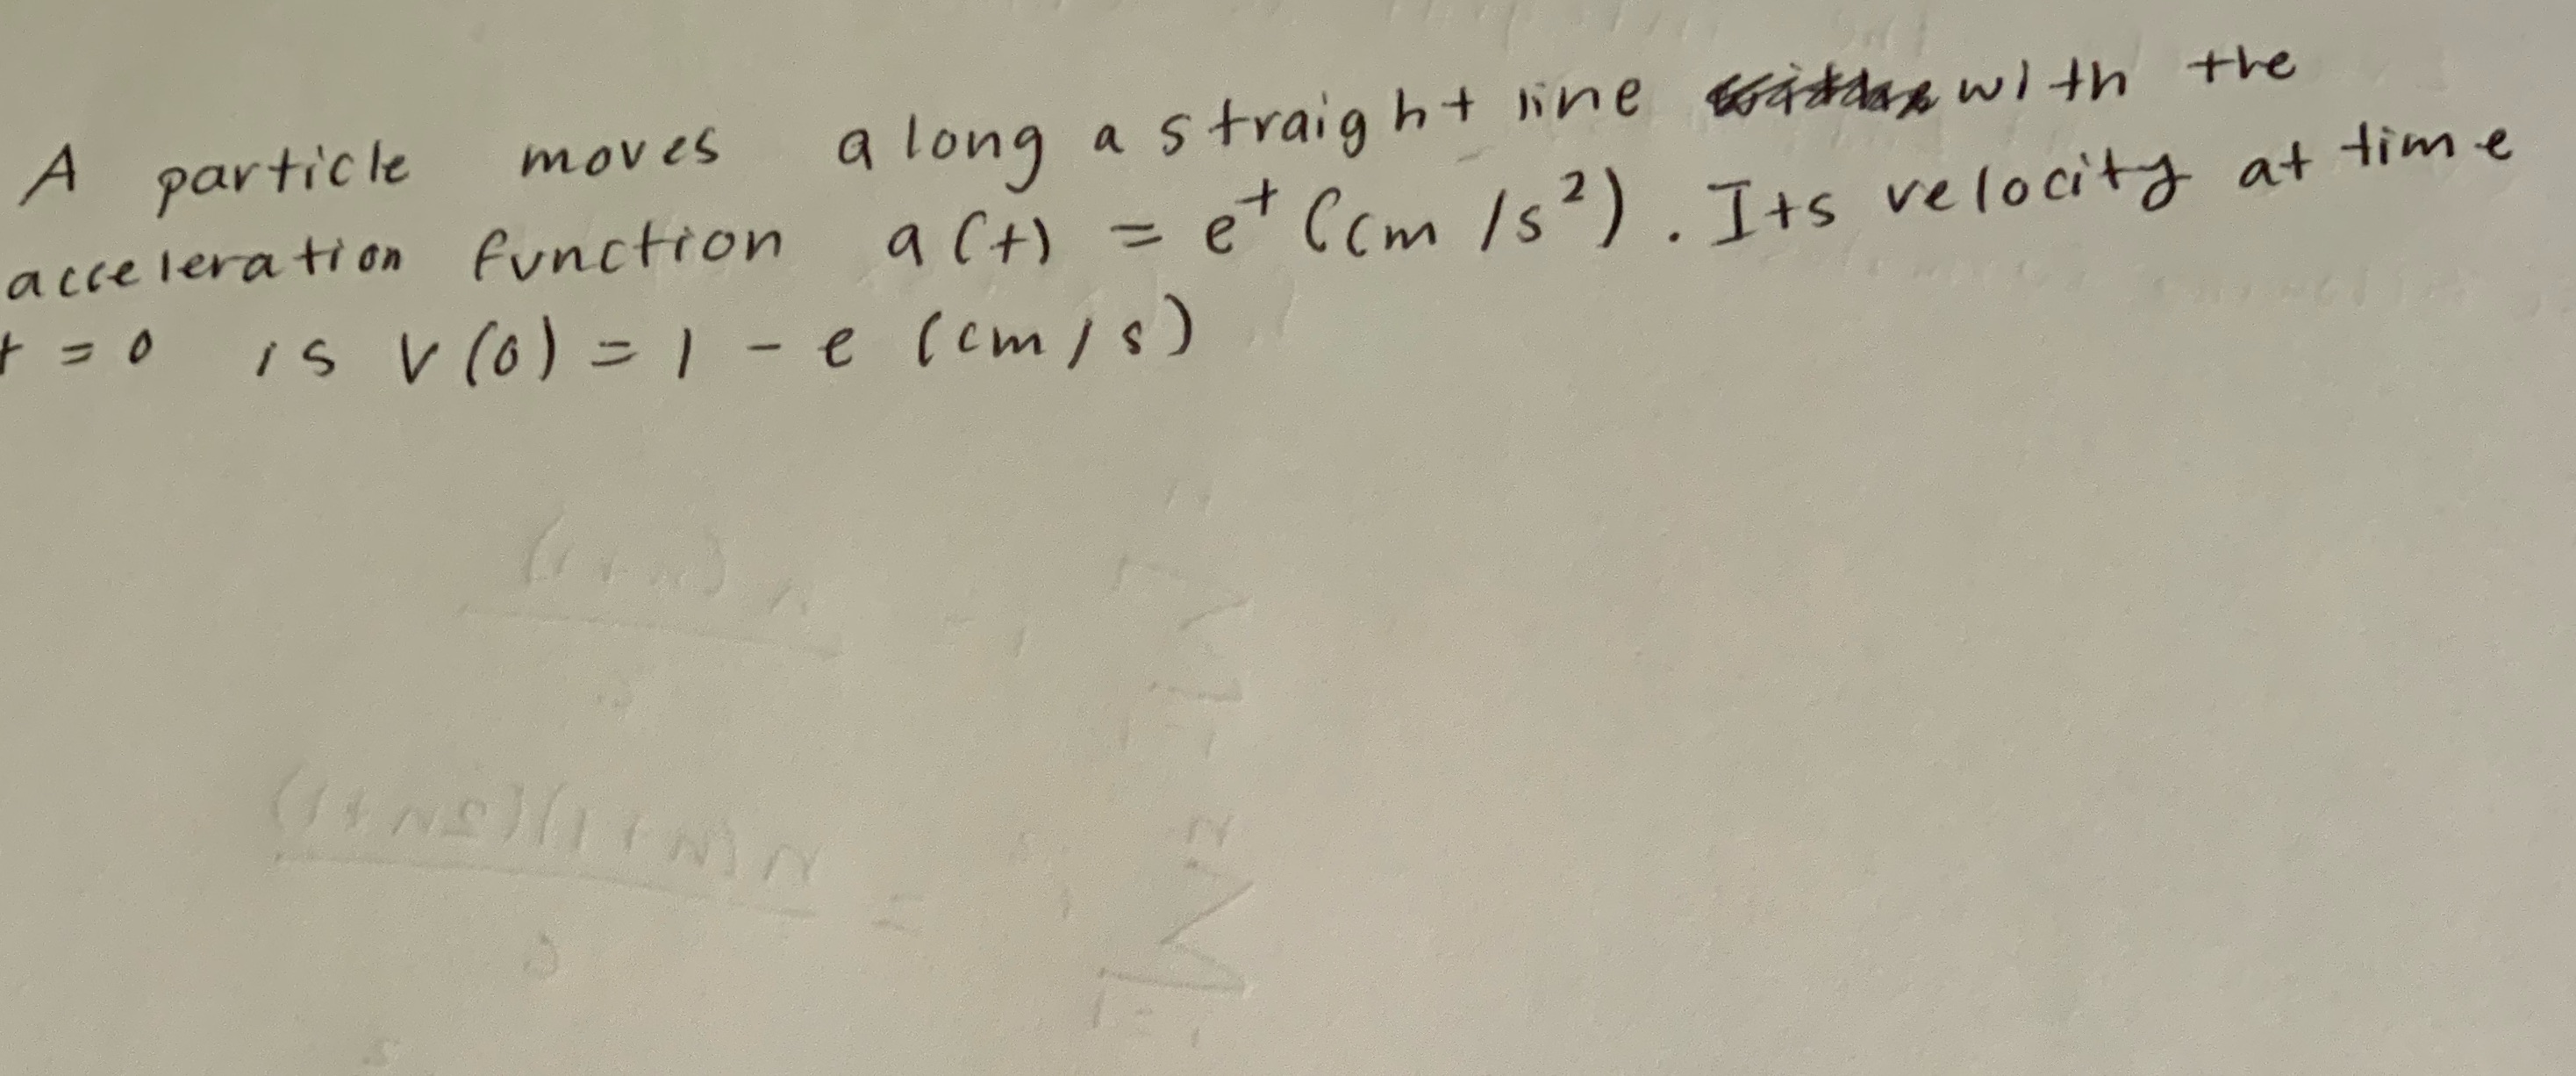 A particle moves along a straight line with the
acceleration function a(t) = e^t (cm/s²). Its velocity at time
t = 0 is v(0) = 1 - e (cm/s)